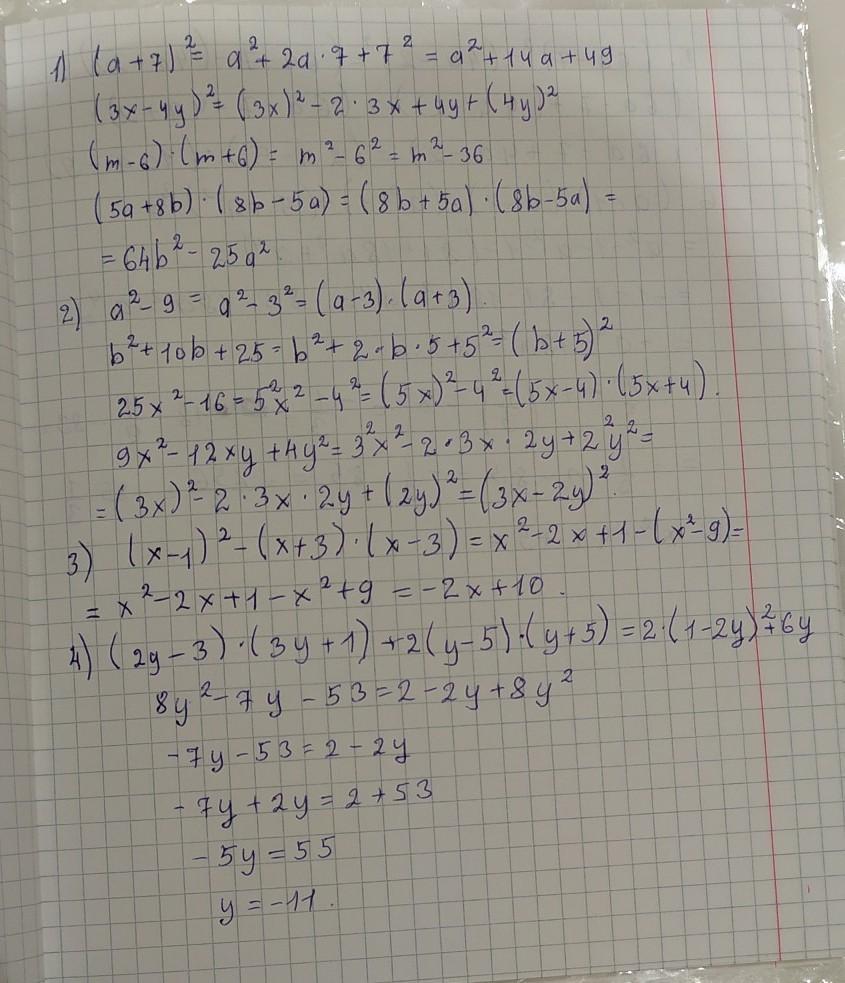 1) (a+7)² = a²+2a·7+7² = a²+14a+49
(3x-4y)² = (3x)²-2·3x+4y+(4y)²
(m-6)·(m+6) = m²-6² = m²-36
(5a+8b)·(8b-5a) = (8b+5a)·(8b-5a) =
= 64b²-25a².
2) a²-9 = a²-3² = (a-3)·(a+3).
b²+10b+25 = b²+2·b·5+5² = (b+5)²
25x²-16 = 5²x²-4² = (5x)²-4² = (5x-4)·(5x+4).
9x²-12xy+4y² = 3²x²-2·3x·2y+2²y² =
= (3x)²-2·3x·2y+(2y)² = (3x-2y)².
3) (x-1)²-(x+3)·(x-3) = x²-2x+1-(x²-9) =
= x²-2x+1-x²+9 = -2x+10.
4) (2y-3)·(3y+1)+2(y-5)·(y+5) = 2·(1-2y)²+6y
8y²-7y-53 = 2-2y+8y²
-7y-53 = 2-2y
-7y+2y = 2+53
-5y = 55
y = -11.